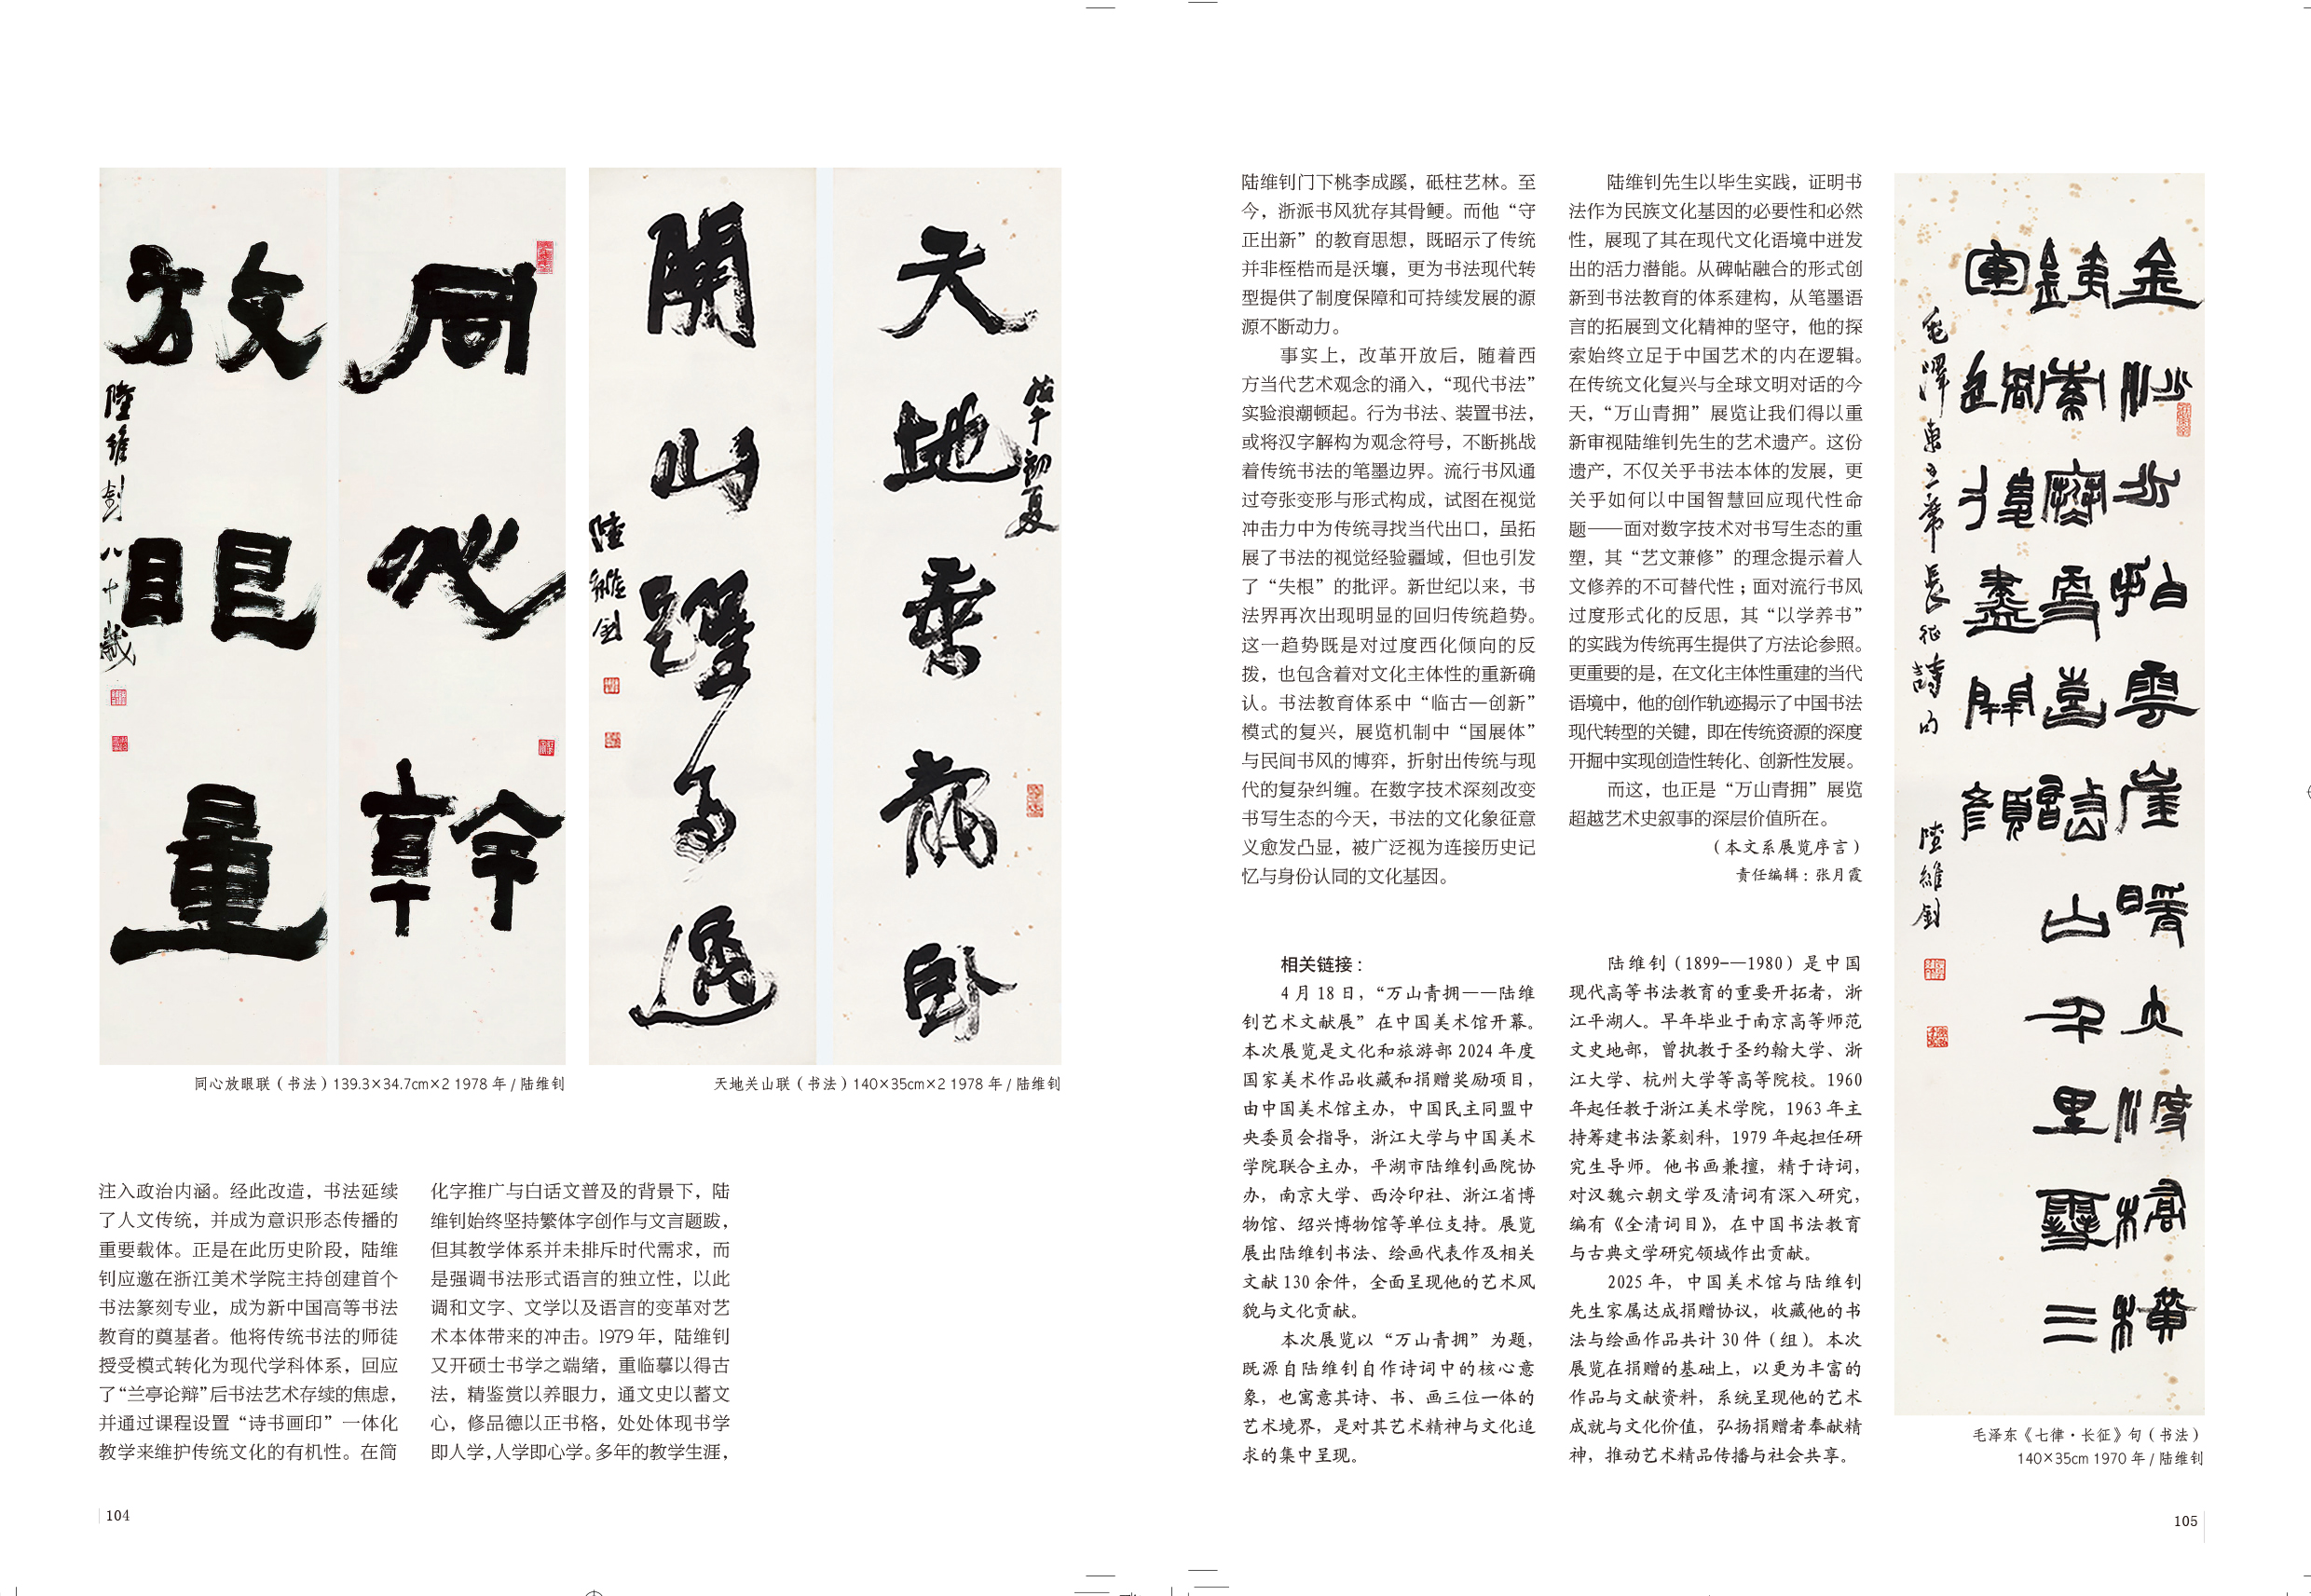 同心幹
放眼量
陸維釗八十歲
天地乘龍卧
戊午初夏
關山躍馬過
陸維釗
同心放眼联（书法）139.3×34.7cm×2 1978 年 / 陆维钊
天地关山联（书法）140×35cm×2 1978 年 / 陆维钊
注入政治内涵。经此改造，书法延续
了人文传统，并成为意识形态传播的
重要载体。正是在此历史阶段，陆维
钊应邀在浙江美术学院主持创建首个
书法篆刻专业，成为新中国高等书法
教育的奠基者。他将传统书法的师徒
授受模式转化为现代学科体系，回应
了“兰亭论辩”后书法艺术存续的焦虑，
并通过课程设置“诗书画印”一体化
教学来维护传统文化的有机性。在简
化字推广与白话文普及的背景下，陆
维钊始终坚持繁体字创作与文言题跋，
但其教学体系并未排斥时代需求，而
是强调书法形式语言的独立性，以此
调和文字、文学以及语言的变革对艺
术本体带来的冲击。1979 年，陆维钊
又开硕士书学之端绪，重临摹以得古
法，精鉴赏以养眼力，通文史以蓄文
心，修品德以正书格，处处体现书学
即人学，人学即心学。多年的教学生涯，
104
陆维钊门下桃李成蹊，砥柱艺林。至
今，浙派书风犹存其骨鲠。而他“守
正出新”的教育思想，既昭示了传统
并非桎梏而是沃壤，更为书法现代转
型提供了制度保障和可持续发展的源
源不断动力。
事实上，改革开放后，随着西
方当代艺术观念的涌入，“现代书法”
实验浪潮顿起。行为书法、装置书法，
或将汉字解构为观念符号，不断挑战
着传统书法的笔墨边界。流行书风通
过夸张变形与形式构成，试图在视觉
冲击力中为传统寻找当代出口，虽拓
展了书法的视觉经验疆域，但也引发
了“失根”的批评。新世纪以来，书
法界再次出现明显的回归传统趋势。
这一趋势既是对过度西化倾向的反
拨，也包含着对文化主体性的重新确
认。书法教育体系中“临古—创新”
模式的复兴，展览机制中“国展体”
与民间书风的博弈，折射出传统与现
代的复杂纠缠。在数字技术深刻改变
书写生态的今天，书法的文化象征意
义愈发凸显，被广泛视为连接历史记
忆与身份认同的文化基因。
陆维钊先生以毕生实践，证明书
法作为民族文化基因的必要性和必然
性，展现了其在现代文化语境中迸发
出的活力潜能。从碑帖融合的形式创
新到书法教育的体系建构，从笔墨语
言的拓展到文化精神的坚守，他的探
索始终立足于中国艺术的内在逻辑。
在传统文化复兴与全球文明对话的今
天，“万山青拥”展览让我们得以重
新审视陆维钊先生的艺术遗产。这份
遗产，不仅关乎书法本体的发展，更
关乎如何以中国智慧回应现代性命
题——面对数字技术对书写生态的重
塑，其“艺文兼修”的理念提示着人
文修养的不可替代性；面对流行书风
过度形式化的反思，其“以学养书”
的实践为传统再生提供了方法论参照。
更重要的是，在文化主体性重建的当代
语境中，他的创作轨迹揭示了中国书法
现代转型的关键，即在传统资源的深度
开掘中实现创造性转化、创新性发展。
而这，也正是“万山青拥”展览
超越艺术史叙事的深层价值所在。
（本文系展览序言）
责任编辑：张月霞
相关链接：
4 月 18 日，“万山青拥——陆维
钊艺术文献展”在中国美术馆开幕。
本次展览是文化和旅游部 2024 年度
国家美术作品收藏和捐赠奖励项目，
由中国美术馆主办，中国民主同盟中
央委员会指导，浙江大学与中国美术
学院联合主办，平湖市陆维钊画院协
办，南京大学、西泠印社、浙江省博
物馆、绍兴博物馆等单位支持。展览
展出陆维钊书法、绘画代表作及相关
文献 130 余件，全面呈现他的艺术风
貌与文化贡献。
本次展览以“万山青拥”为题，
既源自陆维钊自作诗词中的核心意
象，也寓意其诗、书、画三位一体的
艺术境界，是对其艺术精神与文化追
求的集中呈现。
陆维钊（1899-—1980）是中国
现代高等书法教育的重要开拓者，浙
江平湖人。早年毕业于南京高等师范
文史地部，曾执教于圣约翰大学、浙
江大学、杭州大学等高等院校。1960
年起任教于浙江美术学院，1963 年主
持筹建书法篆刻科，1979 年起担任研
究生导师。他书画兼擅，精于诗词，
对汉魏六朝文学及清词有深入研究，
编有《全清词目》，在中国书法教育
与古典文学研究领域作出贡献。
2025 年，中国美术馆与陆维钊
先生家属达成捐赠协议，收藏他的书
法与绘画作品共计 30 件（组）。本次
展览在捐赠的基础上，以更为丰富的
作品与文献资料，系统呈现他的艺术
成就与文化价值，弘扬捐赠者奉献精
神，推动艺术精品传播与社会共享。
金沙水拍雲崖暖大渡橋橫
鐵索寒更喜岷山千里雪三
軍過後盡開顏
毛澤東主席長征詩句 陸維釗
毛泽东《七律·长征》句（书法）
140×35cm 1970 年 / 陆维钊
105